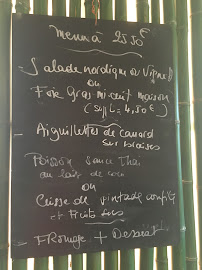 menu à 25,50€
Salade nordique ou
ou
Foie Gras micuit maison
(suppl = 4,50€)
Aiguillettes de canard
sur
Poisson sauce Thaï
au lait de coco
ou
Cuisse de pintade confite
et
Fromage + Dessert